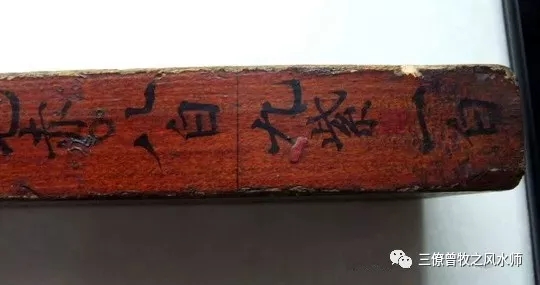 赤 八白 九紫 一白
三僚曾牧之风水师